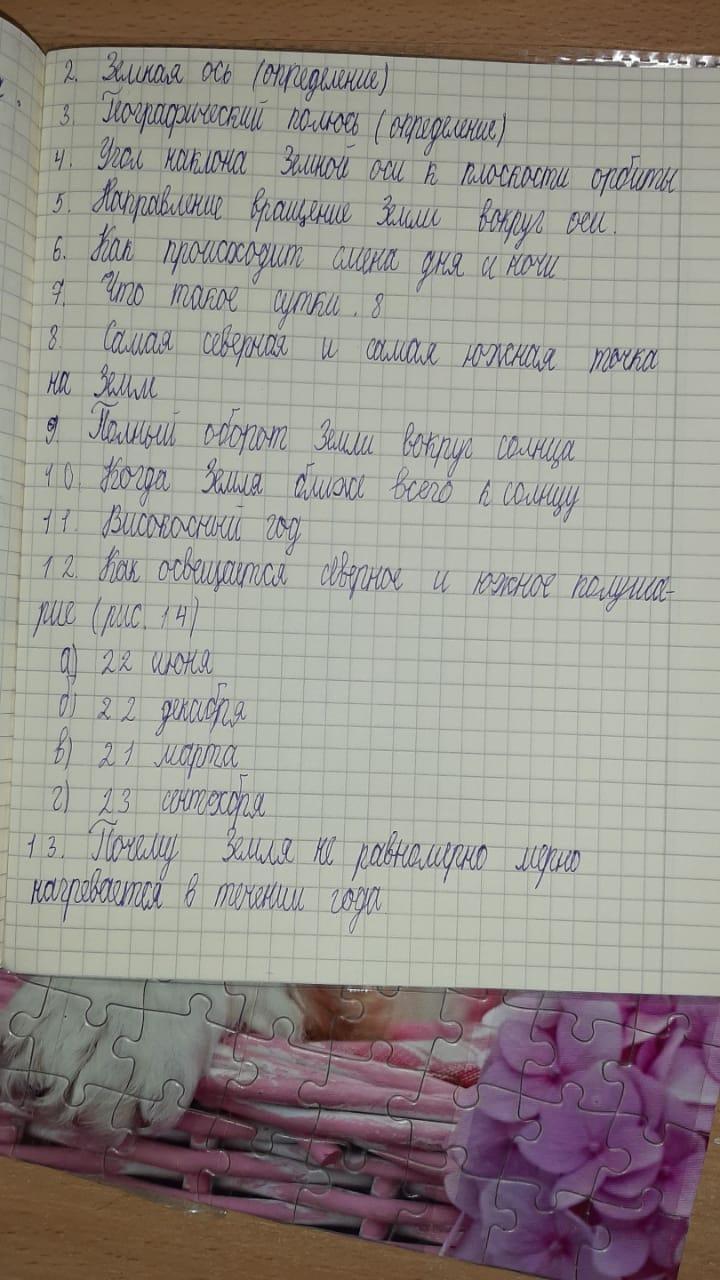 2. Земная ось (определение)
3. Географический полюсь (определение)
4. Угол наклона Земной оси к плоскости орбиты
5. Направление вращение Земли вокруг оси.
6. Как происходит смена дня и ночи
7. Что такое сутки. 8
8. Самая северная и самая южная точка
на Земли
9. Полный оборот Земли вокруг солнца
10. Когда Земля ближе всего к солнцу
11. Високосный год
12. Как освещается северное и южное полуша-
рие (рис. 14)
а) 22 июня
б) 22 декабря
в) 21 марта
г) 23 сентября
13. Почему Земля не равномерно мерно
нагревается в течении года